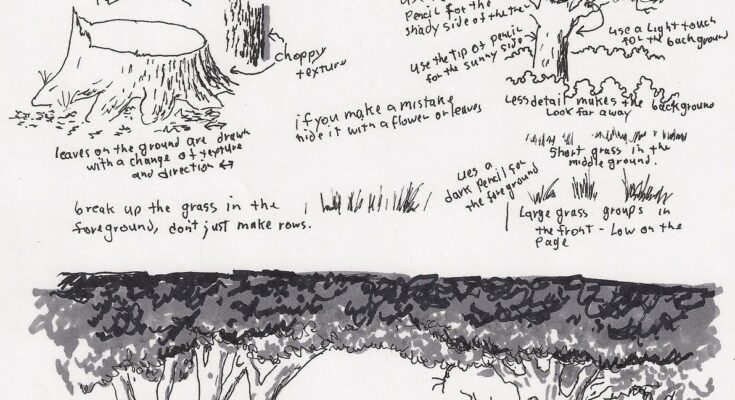 Pencil for the
shady side of the tree
use the tip of pencil
for the sunny side
use a light touch
for the background
choppy
texture
if you make a mistake
hide it with a flower or leaves
Less detail makes the background
Look far away
leaves on the ground are drawn
with a change of texture
and direction ↔
Short grass in the
middle ground.
ues a
dark pencil for
the foreground
break up the grass in the
foreground, don't just make rows.
Large grass groups in
the front - Low on the
Page